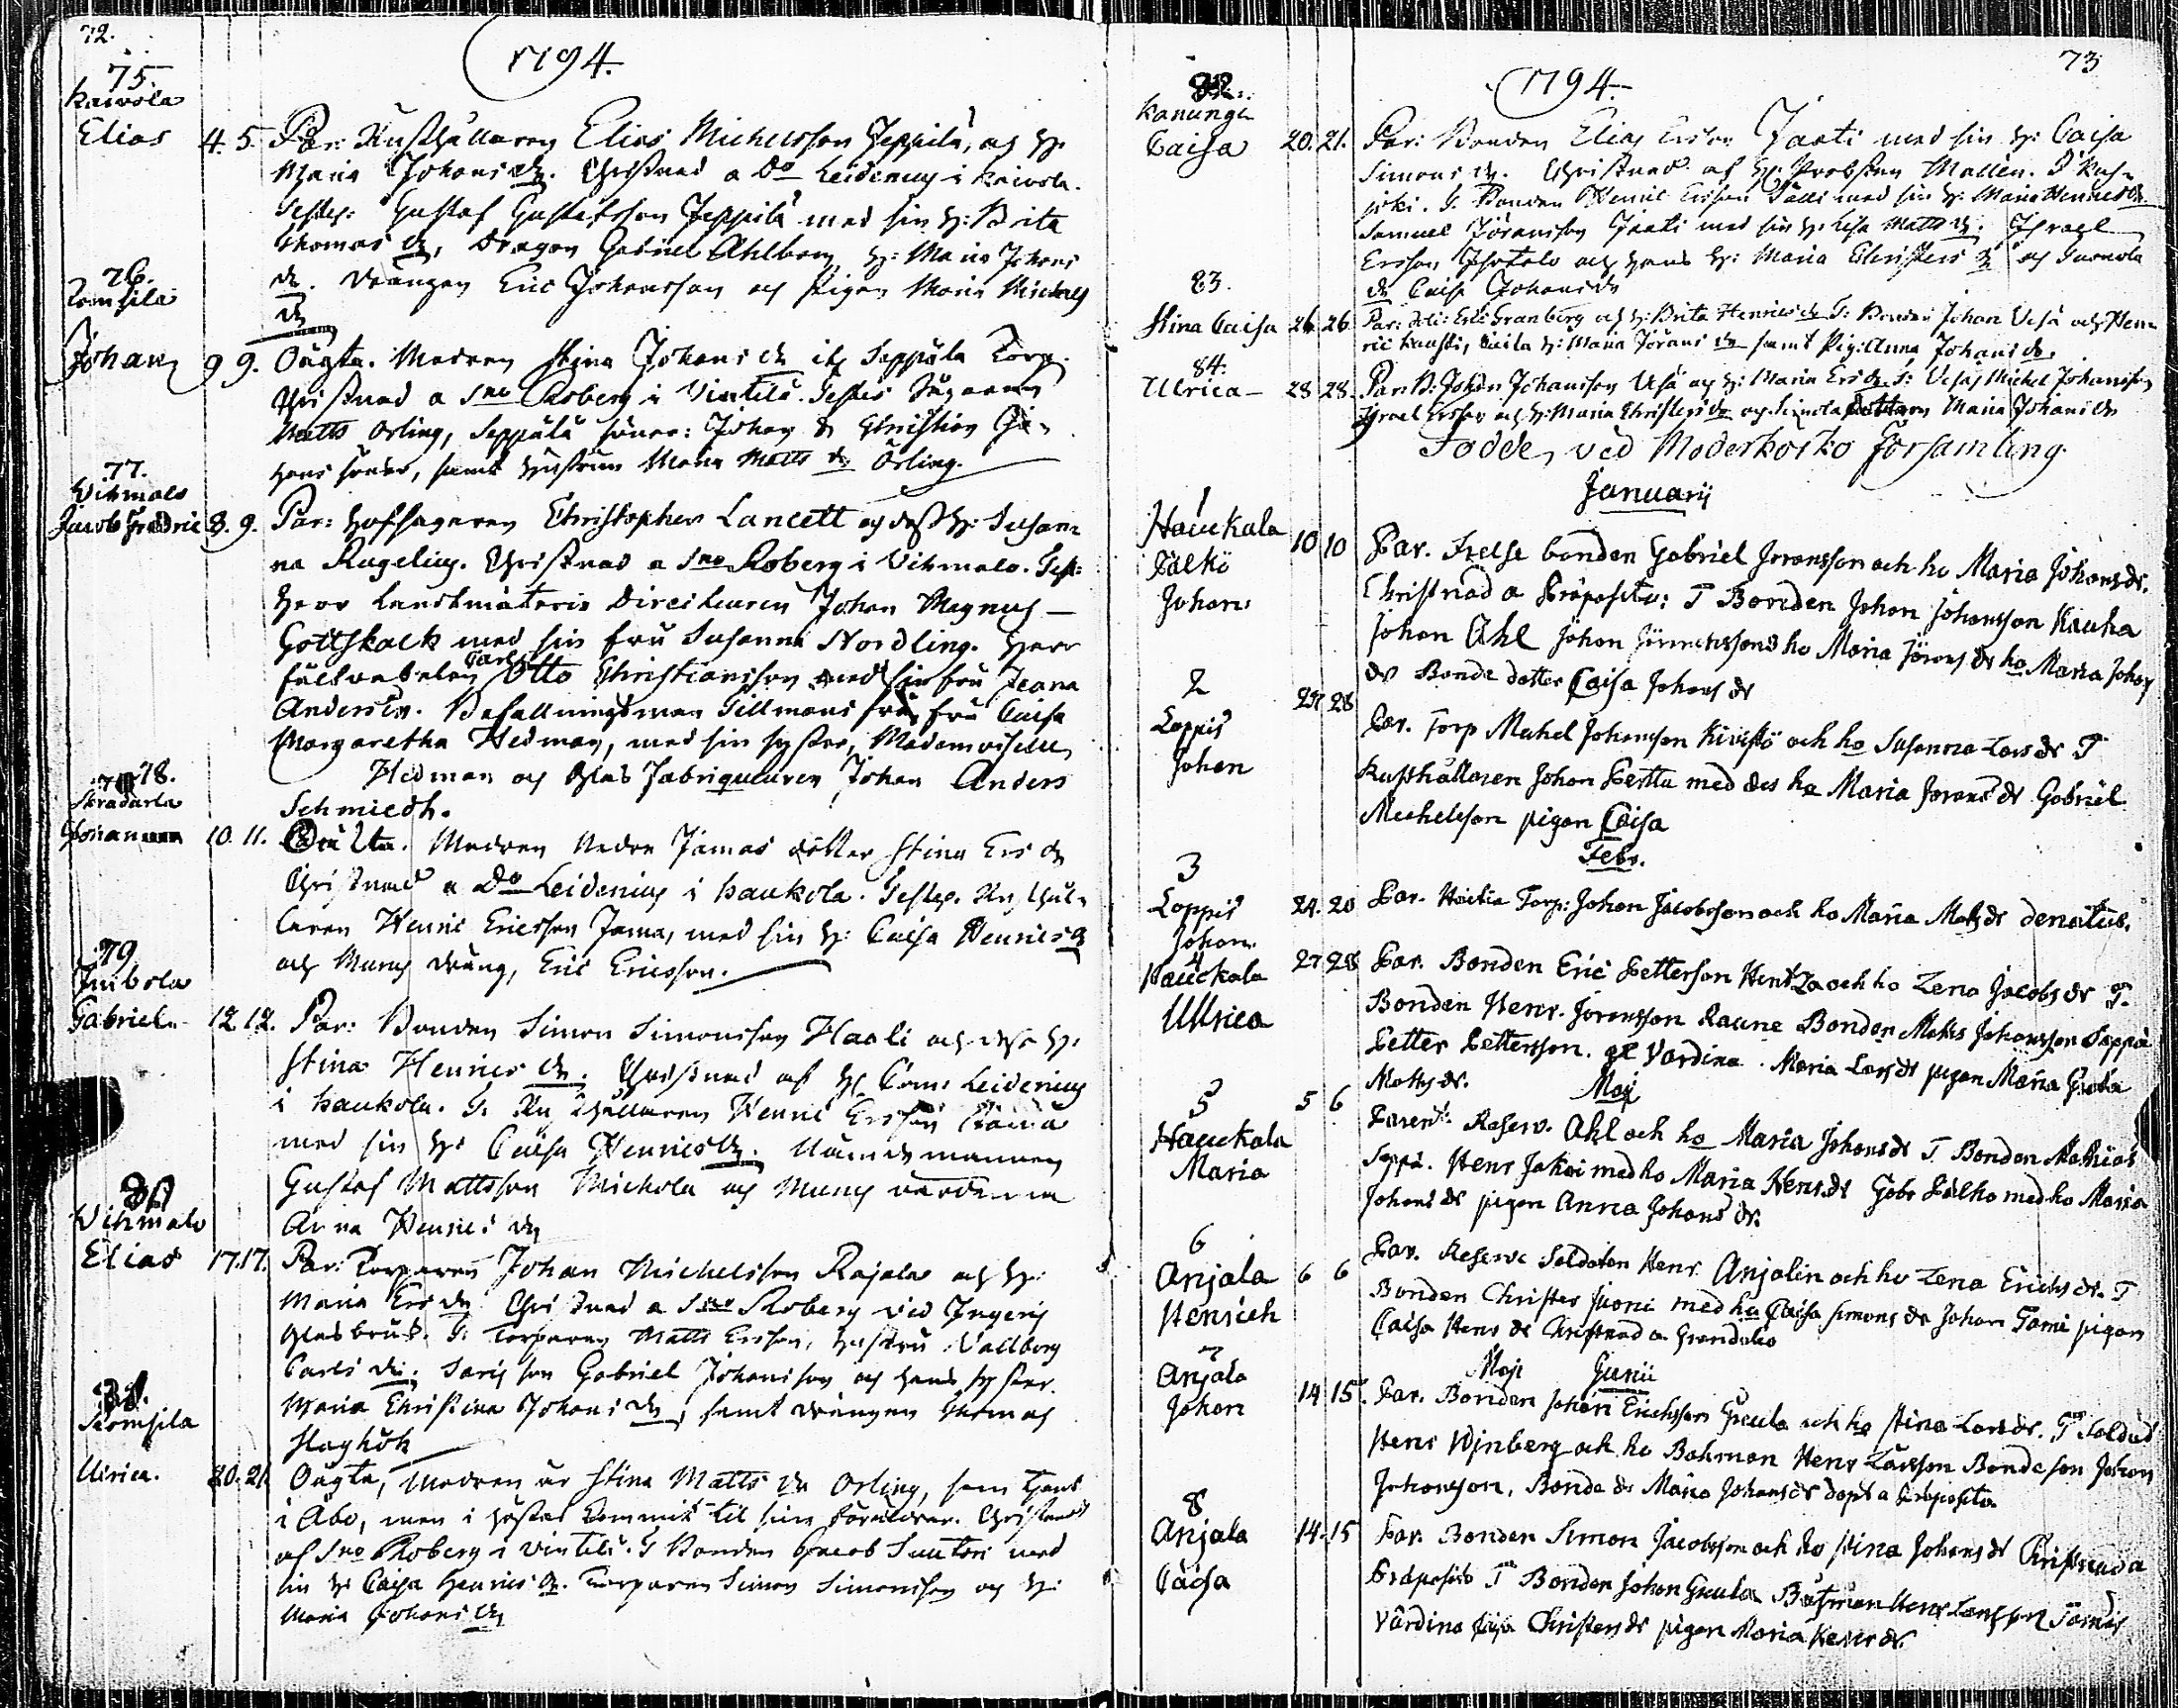 72.
1794.
75.
Kaivola
Elias 4. 5. Par: Rusthållaren Elias Michelsson Jeppilä, och H:
Maria Johans dr. Christnad a Do Leidenius i Kaivola.
Testes: Gustaf Gustafsson Jeppilä med sin H: Brita
Thomas dr, Dragon Gabriel Ahlberg, H: Maria Johans
dr. Drängen Eric Johansson och Pigan Maria Michels
dr
76.
Tomsila
Johan 9 9. Oägta. Modren Stina Johans dr Seppälä Torp.
Christnad a Sno Roberg i Vintilä. Testes
Matts Orling, Seppälä söner: Johan & Christian Jo-
hans söner, samt hustrun Maria Matts dr Örling.
77.
Vihmalo
Jacob Fredric 8. 9. Par: Hofslagaren Christopher Lancett och dess H: Susan-
na Rugelius. Christnad a Sno Roberg i Vihmalo. Test:
Herr Landtmäteris Directeuren Johan Magnus
Gottskalk med sin fru Susanna Nordling. Herr
fältväbelen Carl Otto Christiansson med sin fru Jeana
Andersin. Befallningsman Tillmans fru Caisa
Margaretha Hedman, med sin syster, Mademoiselle
Hedman och Glas Fabriqueuren Johan Anders
Schmiedh.
78.
Johan 10. 11. Oäckta. Modren Nedre Jamas dotter Stina Ers dr
Christnad a Do Leidenius i Haukola. Testes. Rusthål-
laren Henric Ericsson Jama, med sin H: Caisa Henrics dr
och Muncs dräng, Eric Ericsson.
79
Imbola
Gabriel 12 12. Par: Bonden Simon Simonsson Haali och dess H:
Stina Henrics dr. Christnad af H: Com: Leidenius
i Haukola. T: Rusthållaren Henric Ersson Jama
med sin H: Caisa Henrics dr. Nämndemannen
Gustaf Mattsson Michola och Muncs värdinna
Anna Henrics dr
80
Vihmalo
Elias 17. 17. Par: Torparen Johan Michelsson Rajala och H:
Maria Ers dr. Christnad a Sno Roberg vid Ingeris
Glasbruk. T: Torparen Matts Ersson, hustru Vallborg
Carls dr. Saris son Gabriel Johansson och hans syster
Maria Christina Johans dr, samt drängen Thomas
Slaghök
81.
Romsila
Ulrica. 20. 21 Oägta, Modren är Stina Matts dr Orling, som tjent
i Åbo, men i höstas kommit til sina föräldrar. Christnad
af Sno Roberg i Vintilä. T Bonden Jacob Suutari med
sin H: Caisa Henrics dr. Torparen Simon Simonsson och H:
Maria Johans dr
73
1794.
82.
Kanunge
Caisa 20. 21. Par: Bonden Elias Ersson Jaati med sin H: Caisa
Simons dr. Christnad af H: Probsten Mallén.
joki. T. Bonden Henric Ersson Talli med sin H: Maria Henrics dr
Samuel Jöransson Jaati med sin H: Lisa Matts dr. Israel
Ersson Isotalo och hans H: Maria Christers dr och
dr Caisa Johans dr
83.
Stina Caisa 26 26 Par: Sol: Eric Granberg och H: Brita Henrics dr T: Bonden Johan Uusi och Hen-
ric H: Maria Jörans dr samt Pig: Anna Johans dr.
84.
Ulrica 28 28. Par: B: Johan Johansson Uusi och H: Maria Ers dr T: Michel Johansson
Israel Ersson och H: Maria Christers dr och dottren Maria Johans dr
Födde, vid Moderkorko församling.
Januarij
1
Hauckala 10 10 Par. Frelse bonden Gabriel Joransson och ho Maria Johans dr.
Pälkö
Johan
Christnad a Præposito: T Bonden Johan Johansson Kauha
Johan Ahl Johan ho Maria Jörans dr ho Maria Johans
dr Bonde dotter Caisa Johans dr
2
Loppis 27 28
Johan
Par. Torp Mickel Johansson Kivistö och ho Susanna Lars dr T
Rusthållaren Johan Perttu med des ho Maria Jorans dr Gabriel
Mickelsson pigan Caisa
Febr.
3
Loppis 24. 20 Par. Torp: Johan Jacobsson och ho Maria Mats dr denatus.
Johan
4
Hauckala 27 28 Par. Bonden Eric Pettersson och ho Lena Jacobs dr T.
Ullrica
Bonden Henr. Joransson Raune Bonden Matts Johansson Seppä
Petter Pettersson. Värdina. Maria Lars dr pigan Maria Greta
Mats dr.
Maj
5
Hauckala 5 6 Parent: Reserv. Ahl och ho Maria Johans dr T. Bonden Mathias
Maria
Seppä. Henr Jakoi med ho Maria Henr dr Gabr Pälkö med ho Maria
Johans dr pigan Anna Johans dr.
6
Anjala 6 6 Par. Reserve Soldaten Henr Anjalin och ho Lena Erichs dr. T
Henrich
Bonden Christer Juoni med ho Caisa Simons dr Johan Tomi pigan
Caisa Henr dr Christnad a Grondalio
Maji Junii
7
Anjala 14 15. Par. Bonden Johan Erichsson Greula och ho Stina Lars dr. T Soldat
Johan
Henr Winberg och ho Båtsman Henr Larsson Bonde son Johan
Johansson, Bonde dr Maria Johans dr döpt a Præposito
8
Anjala 14. 15 Par. Bonden Simon Jacobsson och ho Stina Johans dr Christnad a
Caisa
Præposito T Bonden Johan Greula Båtsman Henr Larsson Tomis
Värdina Christers dr pigan Maria Henr dr